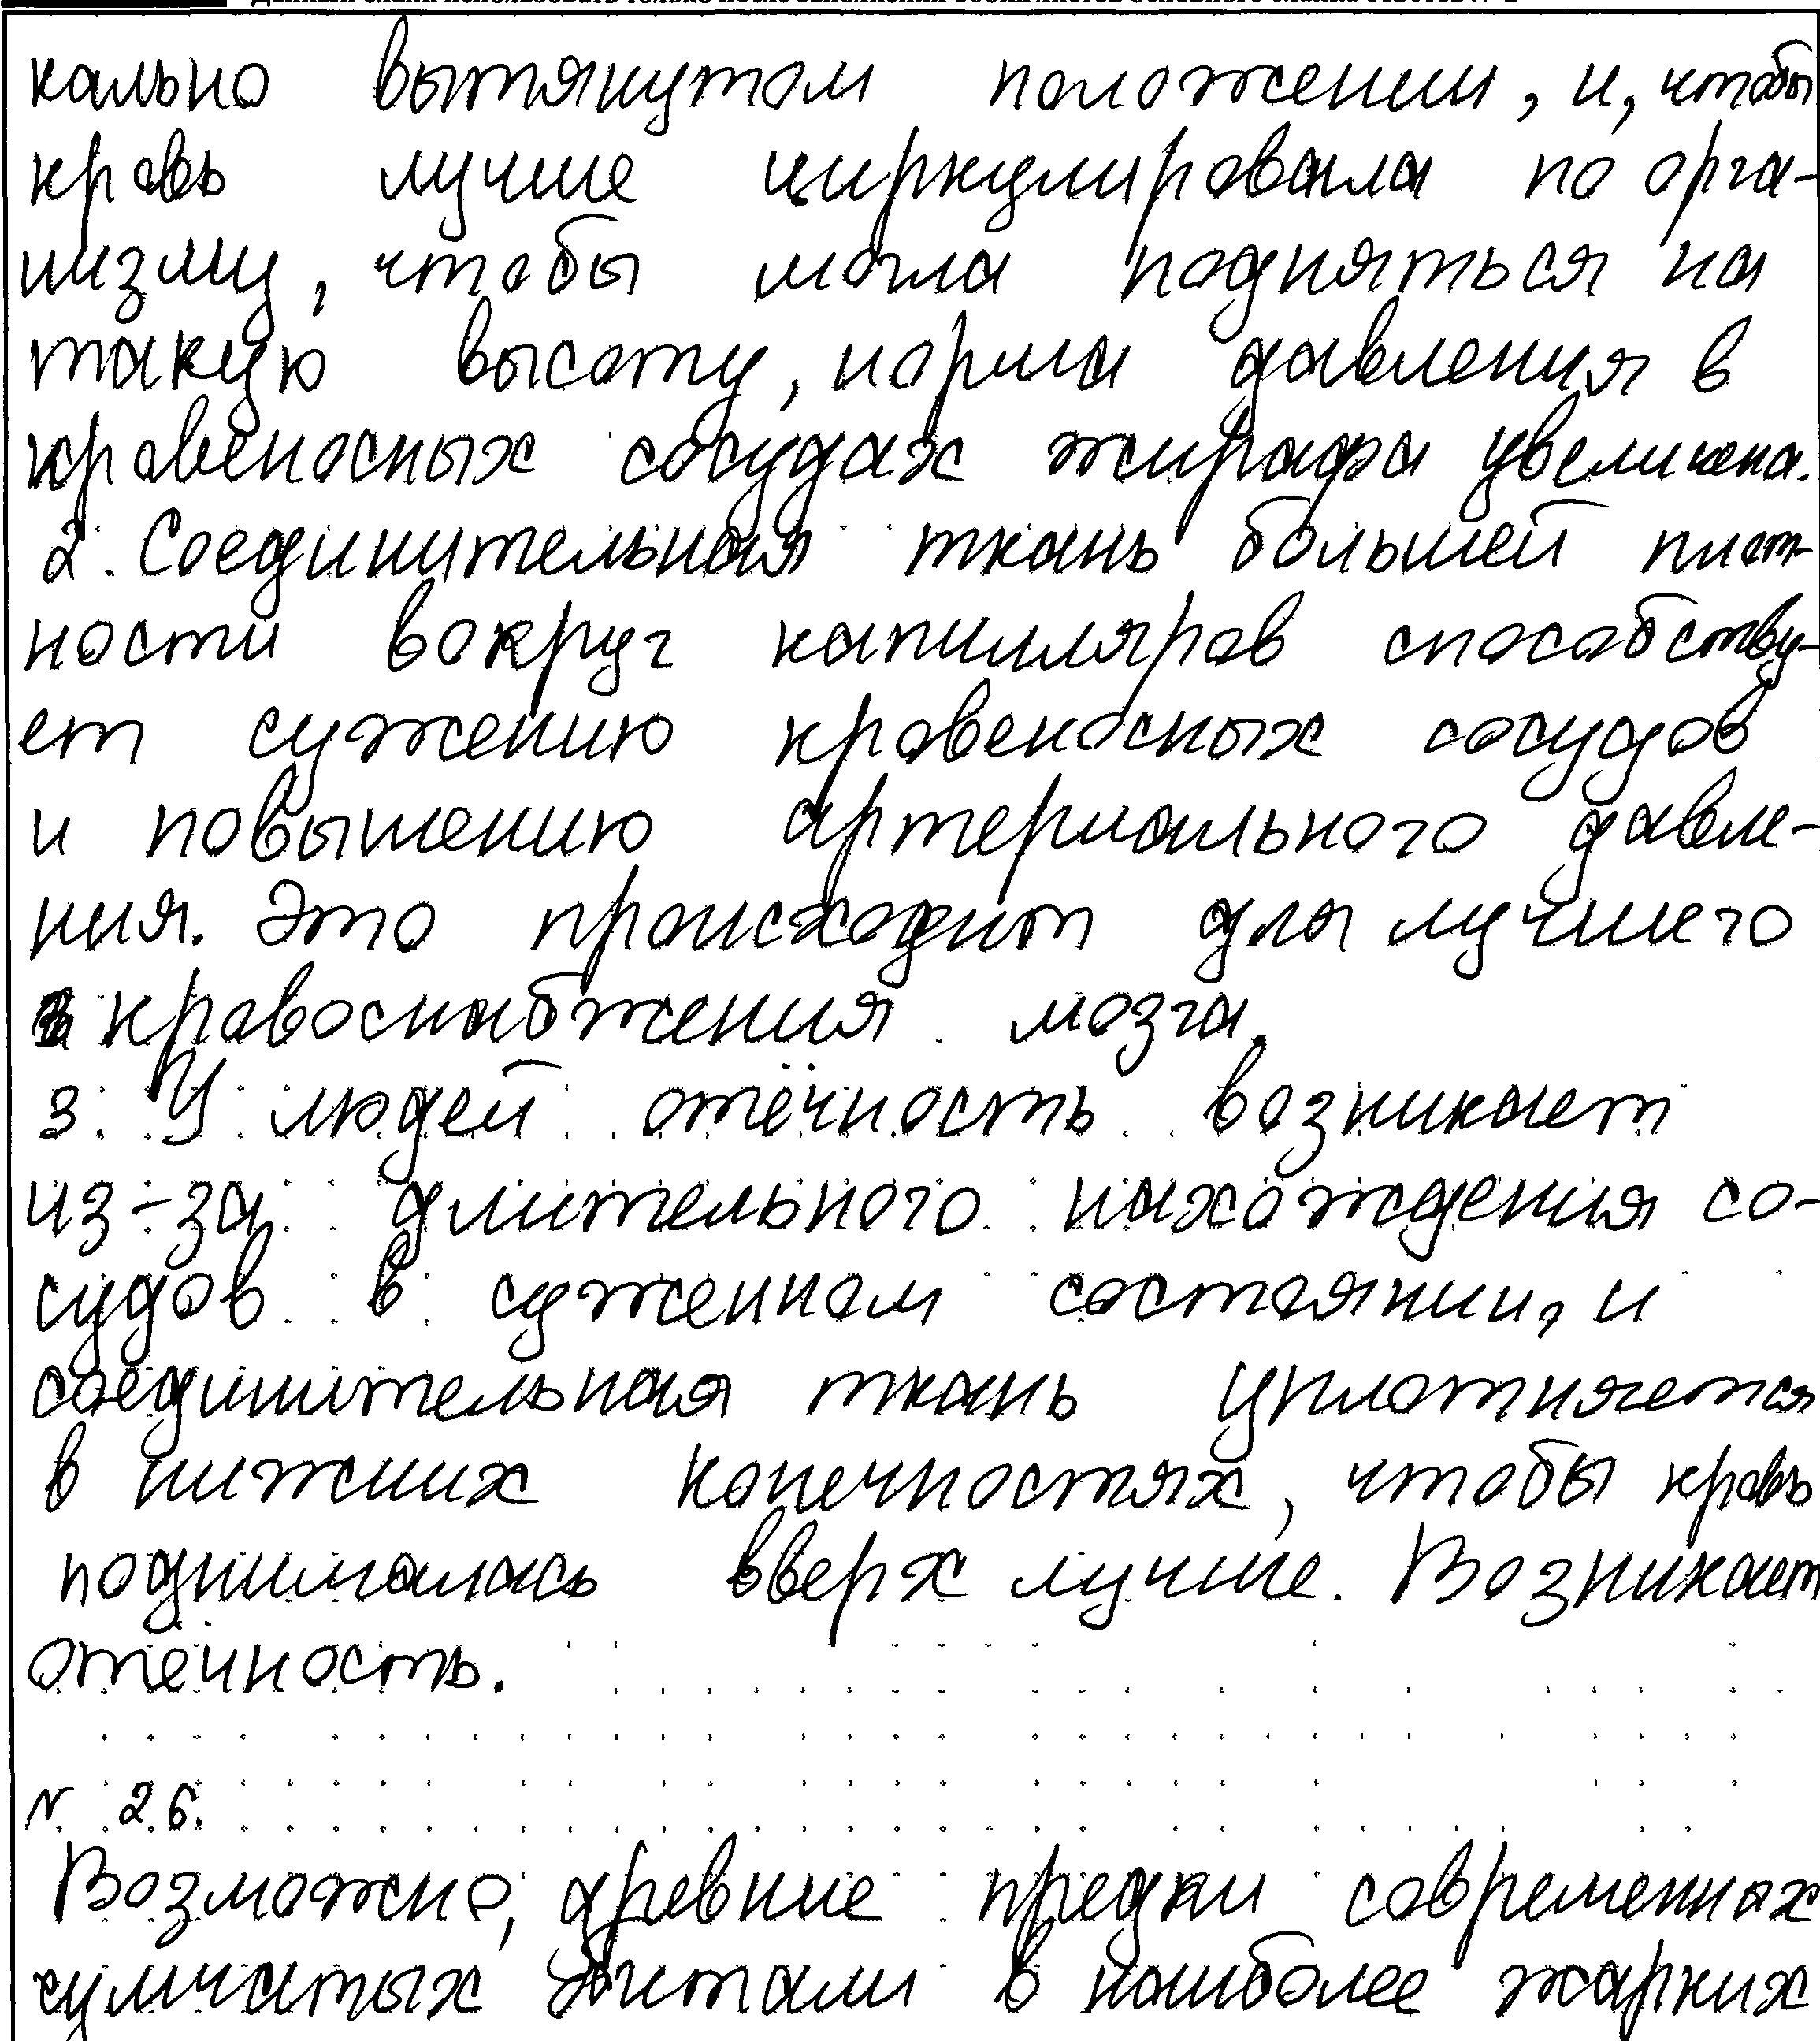 Данный бланк использовать только после заполнения обоих листов основного бланка ответов № 2
кально вытянутом положении, и, чтобы
кровь лучше циркулировала по орга-
низму, чтобы могла подняться на
такую высоту, норма давления в
кровеносных сосудах жирафа увеличена.
2. Соединительная ткань большей плот-
ности вокруг капилляров способству-
ет сужению кровеносных сосудов
и повышению артериального давле-
ния. Это происходит для лучшего
кровоснабжения мозга.
3. У людей отёчность возникает
из-за длительного нахождения со-
судов в суженном состоянии, и
соединительная ткань уплотняется
в нижних конечностях, чтобы кровь
поднималась вверх лучше. Возникает
отёчность.
№ 26.
Возможно, древние предки современных
сумчатых обитали в наиболее жарких